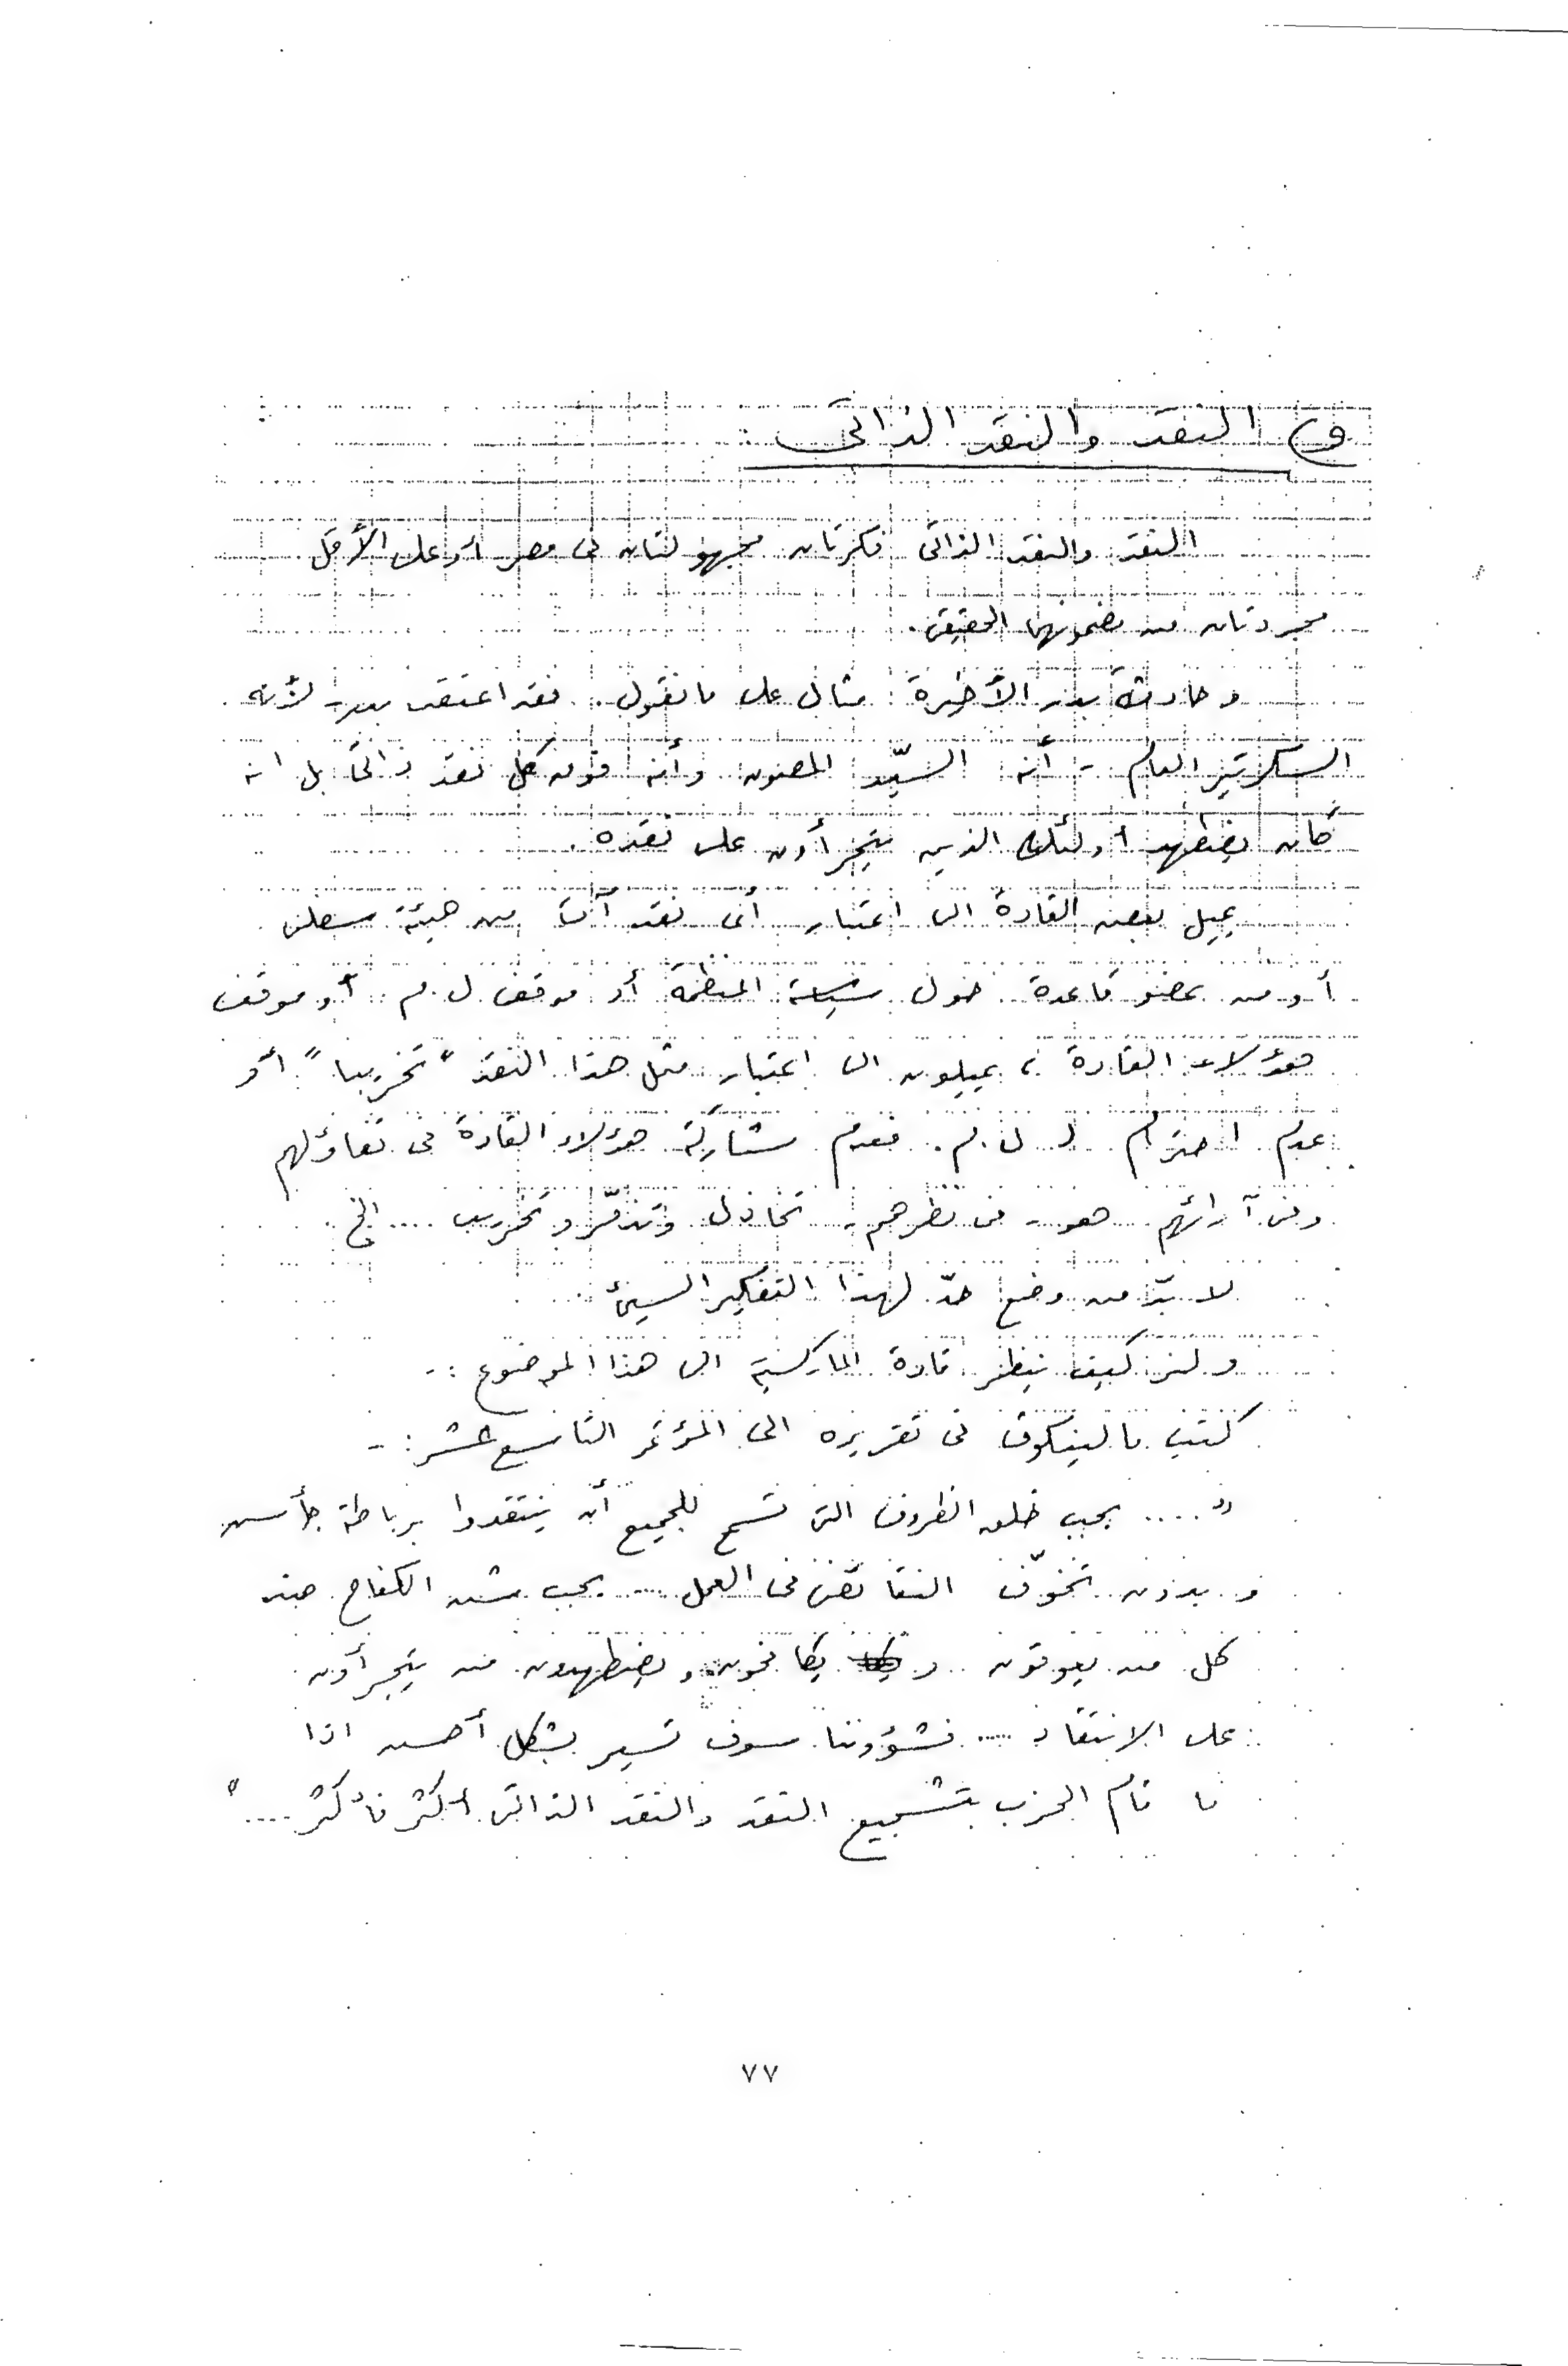 و) النقد والنقد الذاتى
النقد والنقد الذاتى فكرتان مجهولتان فى مصر أو على الأقل
مجردتان من مضمونهما الحقيقى.
وحادثة بدر الأخيرة مثال على ما نقول. فقد اعتقد بدر - لأنه
السكرتير العام - أنه السيّد المصون وأنه فوق كل نقد ذاتى بل انه
كان يضطهد أولئك الذين يتجرأون على نقده.
يميل بعض القادة الى اعتبار أى نقد آت من هيئة سفلى
أو من عضو قاعدة حول سياسة المنظمة أو موقف ل.م. أو موقف
هؤلاء القادة، يميلون الى اعتبار مثل هذا النقد "تخريبا" أو
عدم احترام لـ ل.م. فعدم مشاركة هؤلاء القادة فى تفاؤلهم
وفى آرائهم هو - فى نظرهم - تخاذل وتذمّر وتخريب .... الخ
لا بدّ من وضع حدّ لهذا التفكير السيئ
ولنر كيف ينظر قادة الماركسية الى هذا الموضوع :-
كتب مالينكوف فى تقريره الى المؤتمر التاسع عشر :-
".... يجب خلق الظروف التى تسمح للجميع أن ينتقدوا برباطة جأش
وبدون تخوّف النقائص فى العمل .... يجب شن الكفاح ضد
كل من يعوقون و يكافحون ويضطهدون من يتجرأون
على الانتقاد .... فشؤوننا سوف تسير بشكل أحسن اذا
ما قام الحزب بتشجيع النقد والنقد الذاتى أكثر فأكثر ...."
٧٧